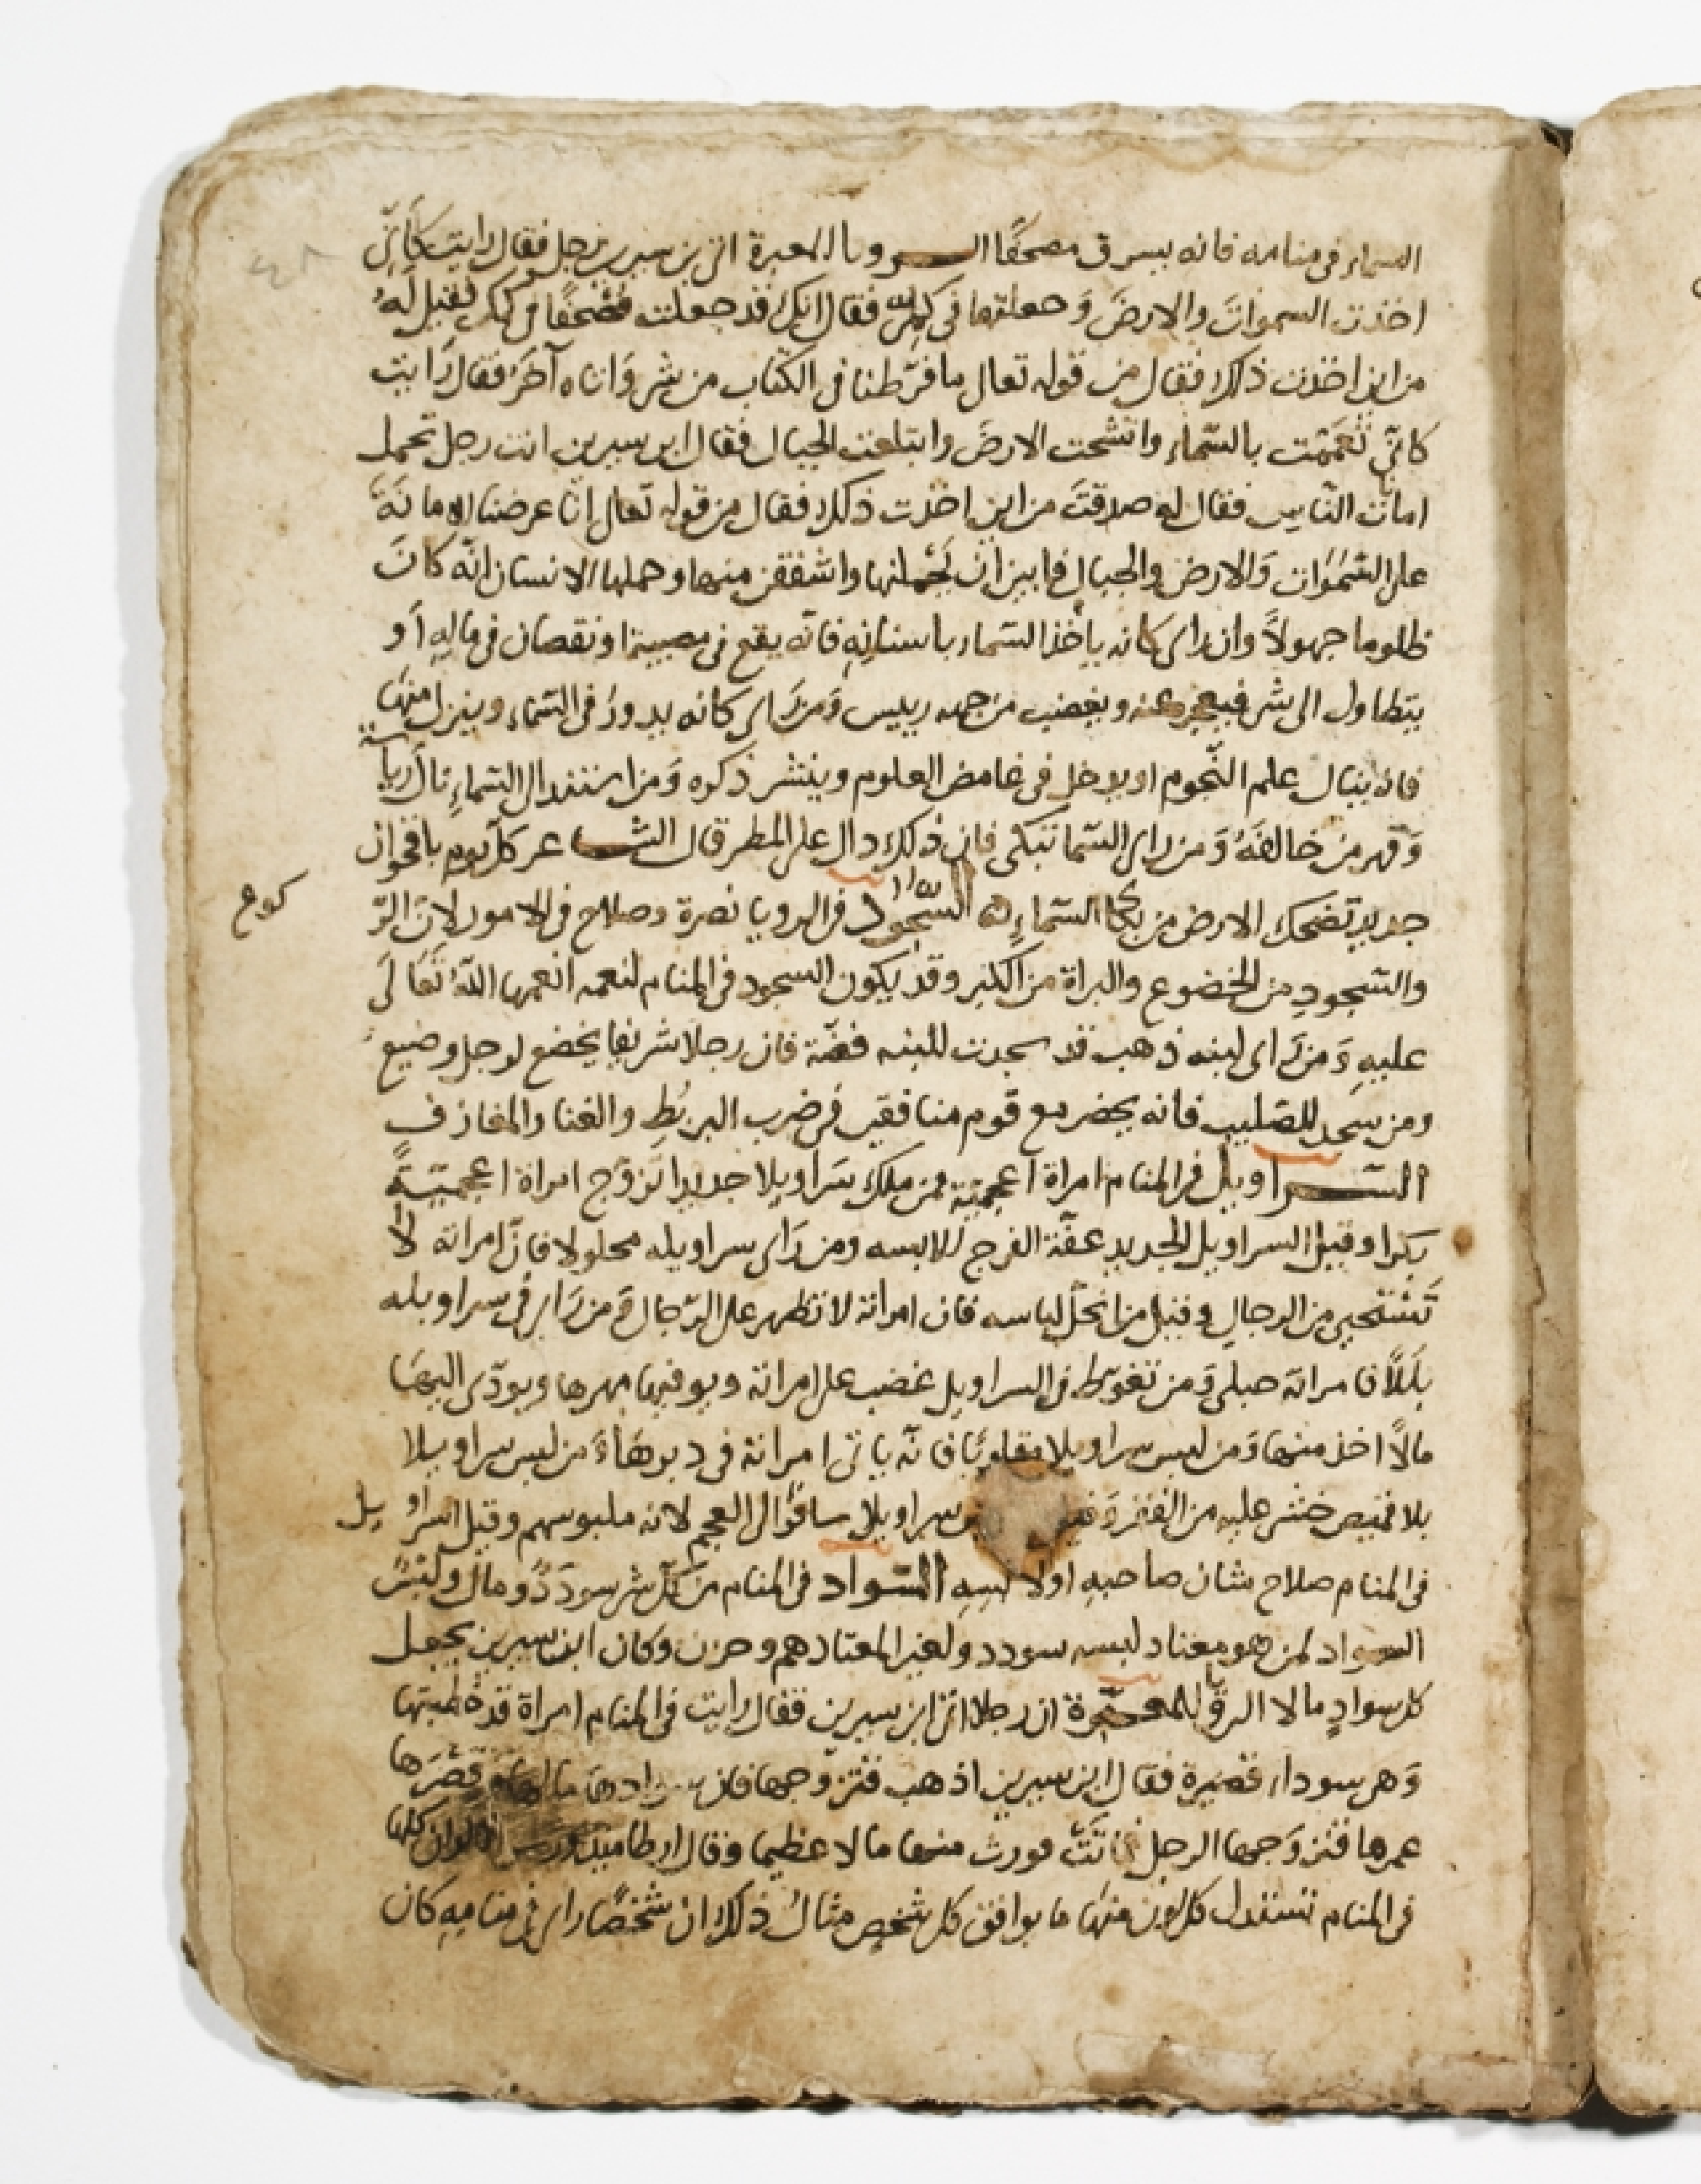 السماء فى منامه فانه يسرق مصحفًا الـرويا المعبرة اتى بن سيرين رجل فقال رايت كَأَنّى
اخذت السموات والارضَ وَجعلتها فى كمى فقال انك قد جعلت مُصْحَفًا فى كمك فقيل لَهُ
من اين اخذت ذلك فقال من قوله تعالى ما فرّطنا فى الكتاب من شى وَاتاه آخَرُ فقال رَايت
كانّى تَعَمّمْت بالسّماء واتشحت الارضَ وابتلعت الجبال فقال ابن سيرين انت رجل تحمل
امانات النّاسِ فقال له صدقتَ من اين اخذت ذلك فقال من قوله تعالى انّا عرضنا الامانَةَ
على السّمَوَات وَالارض والجبال فابين ان يَحْملنها واشفقن منها وحملها الانسان انّه كانَ
ظلوما جهولاً وان راى كانه ياخذ السّماء باسنانِهِ فانّه يقع فى مصيبة او نقصان فى مالِهِ أو
يتطاول الى شى فيعجز عنه ويغضب من جهه رييس وَمن رَاى كانه يدورُ فى السّماء وينزل منهَا
فانه ينال علم النّجوم او يدخل فى غامض العلوم وينتشر ذكره وَمن استند الى السّماءِ نال رياسة
وَقهر من خالفَهُ وَمن راى السّما تبكى فان ذلك دال على المطر قال الشـاعر كلّ يوم باقحوان
جديد تضحك الارض من بكا السّماءِ السّجود فى الرويا نصرة وصلاح فى الامور لانَ الرّ
كوع
والسّجودِ من الخضوع والبراة من الكبر وقد يكون السجود فى المنام لنعمه انعمها اللّهُ تَعَالَى
عليهِ وَمن رَاى لبنه ذهب قد سجدت للبنه فضّة فان رجلا شريفا يخضع لرجل وضيع
ومن سَجد للصّليب فانه يحضر مع قوم منافقين فى ضرب البربُطِ والغنا والمعازف
السّـراويل فى المنام امراة اعجميّة فمن ملك سَراويلا جديدا تزوّج امراة اعجميّةً
بكرا وقيل السراويل الجديد عفّة الفرج للابسه ومن رَاى سراويله محلولا فانّ امراته لا
تَسْتحيى من الرجالِ وقيل من انحلّ لباسه فان امراتة لا تظهر على الرّجال وَمن رَاى فى سراويله
بللاً فامراته حبلى وَمن تغوّط فى السراويل غضب على امراتة ويوفيها مهرها ويودّى اليهَا
مالاً اخذ منها وَمن لبس سراويلا مقلوبًا فانّه ياتى امراتة فى دبرهَا وَمن لبس سراويلا
بلا قميص خشى عليه من الفقر وَقيل سراويلا سافر الى العجم لانه ملبوسهم وقيل السراويل
فى المنام صلاح شان صاحبهِ او لابسِهِ السّواد فى المنام من كلّ شى سوددٌ ومال ولبسُ
السواد لمن هو معتاد لبسه سودد ولغير المعتاد هم وحزن وكان ابن سيرين يجعل
كل سوادٍ مالا الرؤيا المعـبّرة ان رجلا اتى ابن سيرين فقال رايت فى المنام امراة قد خطبتها
وَهى سوداء قصيرة فقال ابن سيرين اذهب فتزوّجها فان سوادها مالها وَقصرَها
عمرها فتزوَجها الرجل فماتَتْ فورث منها مالا عظيما وقال ارطاميدورس الالوان كلها
فى المنام تستدل كل لون منهَا ما يوافق كل شخصٍ مثالُ ذلك ان شَخْصًا راى فى منامِهِ كان